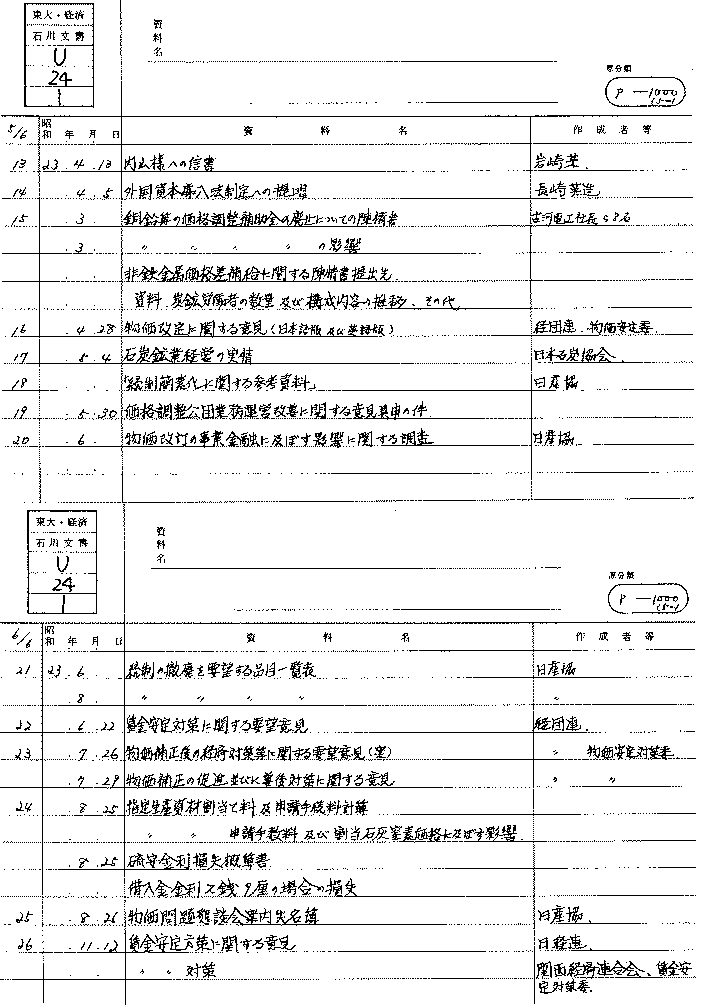 東大・経済
石川文書
U
24
1
資料名
原分類
P-1000
(5-1
5/6 昭和 年 月 日 資料名 作成者等
13 23.4.13 内山様への信書 岩崎
14 .4.5 外国資本導入 制定への 長崎
15 .3. 銅鉛等の価格調整補助金の廃止についての陳情書 古河電工社長
.3. 〃 〃 〃 〃 の影響
非鉄金属価格差補給に関する陳情書提出先
資料 炭鉱労働者の数量及び構成内容の推移、その他
16 .4.28 物価改定に関する意見(日本語版及び英語版) 経団連、物価安定委
17 .5.4 石炭鉱業経営の実情 日本石炭協会、
18 「統制簡素化に関する参考資料」 日産協
19 .5.30 価格調整公団業務運営改善に関する意見具申の件
20 .6. 物価改訂の事業金融に及ぼす影響に関する調査 日産協
東大・経済
石川文書
U
24
1
資料名
原分類
P-1000
(5-1
6/6 昭和 年 月 日 資料名 作成者等
21 23.6. 統制の撤廃を要望する品目一覧表 日産協
.8. 〃 〃 〃 〃 〃
22 .6.22 賃金安定対策に関する要望意見 経団連、
23 .7.26 物価補正後の経済対策等に関する要望意見(案) 〃 物価安定対策委
.7.29 物価補正の促進並びに事後対策に関する意見 〃 〃
24 .8.25 指定生産資材割当て料及申請手数料計算
〃 〃 申請手数料及び割当石灰窒素価格に及ぼす影響
.8.25 硫安金利損失概算書
借入金金利2銭9厘の場合の損失
25 .8.26 物価問題懇談会案内先名簿 日産協、
26 .11.12 賃金安定方策に関する意見 日経連、
〃 〃 対策 関西経済連合会、賃金安
定対策委、